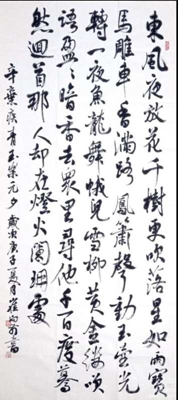 東風夜放花千樹更吹落星如雨寶
馬雕車香滿路鳳簫聲動玉壺光
轉一夜魚龍舞蛾兒雪柳黃金縷笑
語盈盈暗香去眾里尋他千百度驀
然迴首那人却在燈火闌珊處
辛棄疾青玉案元夕 歲次庚子夏月崔書